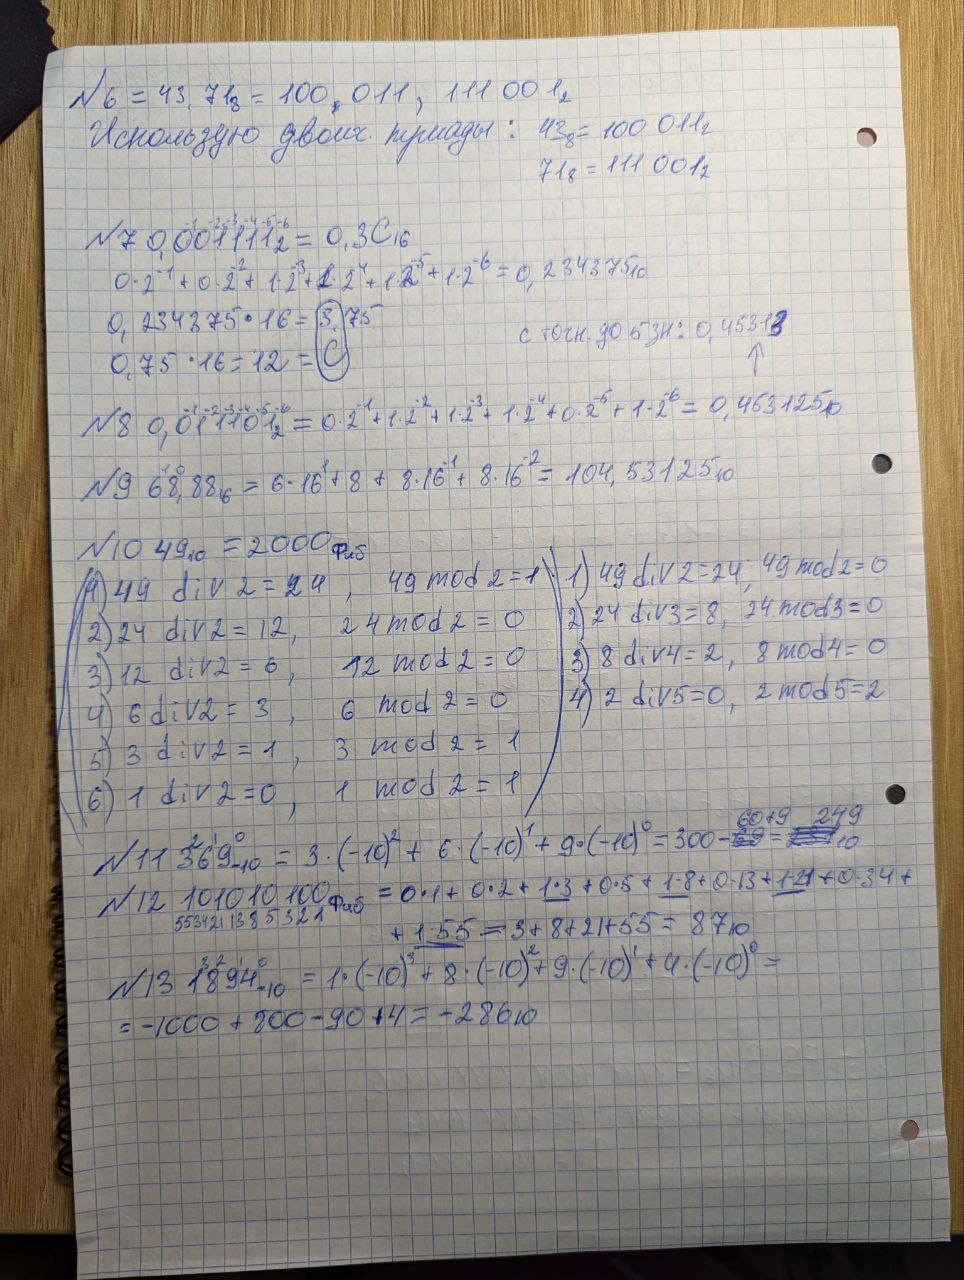 №6 = 43,71₈ = 100 011, 111 001₂
Использую двоич. триады: 43₈ = 100 011₂
71₈ = 111 001₂
№7 0,001111₂ = 0,3C₁₆
-1 -2 -3 -4 -5 -6
0·2⁻¹ + 0·2⁻² + 1·2⁻³ + 1·2⁻⁴ + 1·2⁻⁵ + 1·2⁻⁶ = 0,234375₁₀
0,234375·16 = 3,75
0,75·16 = 12 = C
с точн. до 5 зн: 0,45313
№8 0,011101₂ = 0·2⁻¹ + 1·2⁻² + 1·2⁻³ + 1·2⁻⁴ + 0·2⁻⁵ + 1·2⁻⁶ = 0,453125₁₀
-1 -2 -3 -4 -5 -6
№9 68,88₁₆ = 6·16¹ + 8 + 8·16⁻¹ + 8·16⁻² = 104,53125₁₀
1 0
№10 49₁₀ = 2000Фиб
1) 49 div 2 = 24, 49 mod 2 = 1
2) 24 div 2 = 12, 24 mod 2 = 0
3) 12 div 2 = 6, 12 mod 2 = 0
4) 6 div 2 = 3, 6 mod 2 = 0
5) 3 div 2 = 1, 3 mod 2 = 1
6) 1 div 2 = 0, 1 mod 2 = 1
1) 49 div 2 = 24, 49 mod 2 = 0
2) 24 div 3 = 8, 24 mod 3 = 0
3) 8 div 4 = 2, 8 mod 4 = 0
4) 2 div 5 = 0, 2 mod 5 = 2
60+9 249
№11 369₋₁₀ = 3·(-10)² + 6·(-10)¹ + 9·(-10)⁰ = 300 - = ₁₀
2 1 0
№12 101010100Фиб = 0·1 + 0·2 + 1·3 + 0·5 + 1·8 + 0·13 + 1·21 + 0·34 +
55 34 21 13 8 5 3 2 1
+ 1·55 = 3+8+21+55 = 87₁₀
№13 1894₋₁₀ = 1·(-10)³ + 8·(-10)² + 9·(-10)¹ + 4·(-10)⁰ =
3 2 1 0
= -1000 + 800 - 90 + 4 = -286₁₀